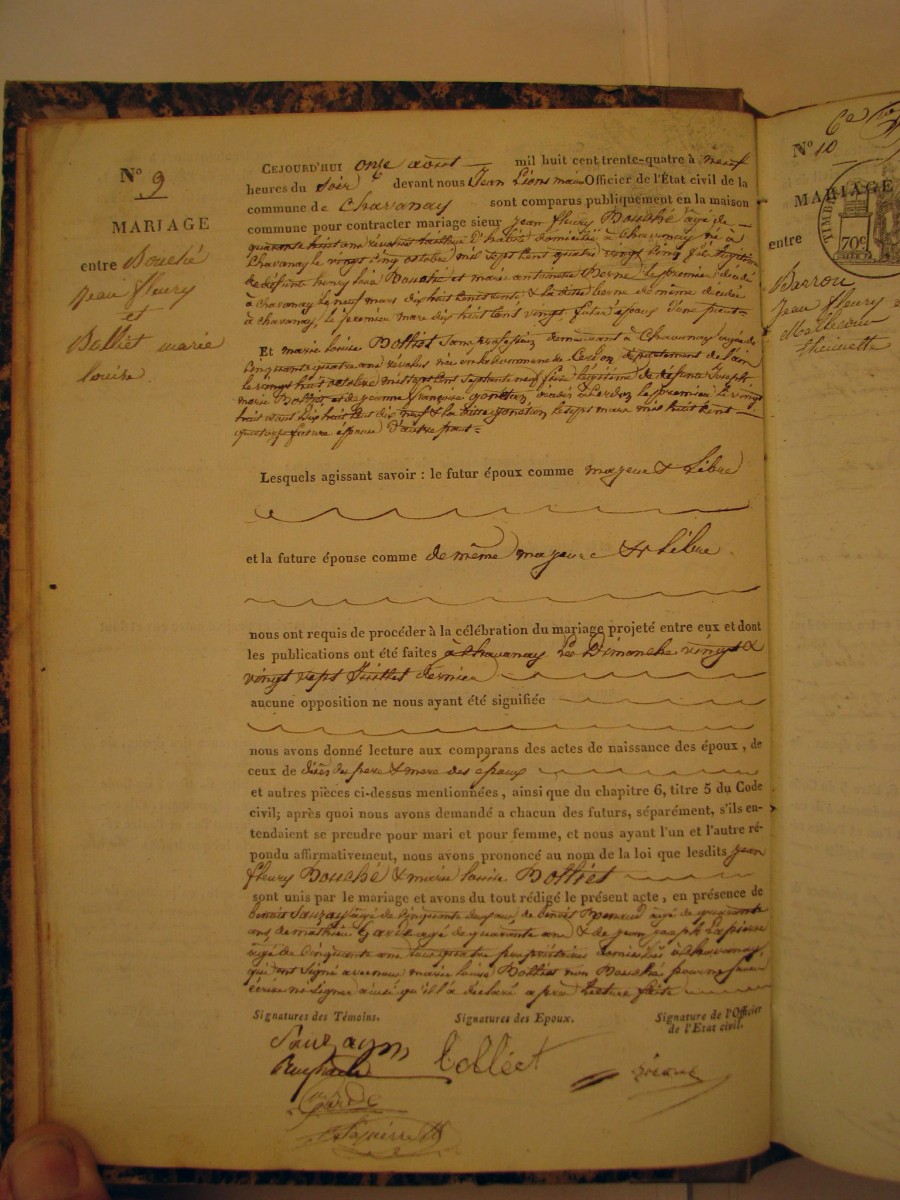 N° 9
MARIAGE
entre Bouché
jean fleury
et
Bolliet marie
louise.
CEJOURD'HUI onze aout mil huit cent trente-quatre à neuf
heures du soir devant nous Jean Lions maire Officier de l'État civil de la
commune de Chavanay sont comparus publiquement en la maison
commune pour contracter mariage sieur jean fleury Bouché âgé de
quarante huit ans révolus d'habits domicilié à Chavanay né à
Chavanay le vingt cinq octobre mil sept cent quatre vingt cinq fils légitime
de défunts henry Bouché et marie antoinette Berne le premier décédé
à chavanay le neuf mars dix huit cent & la dite berne de même décédée
à chavanay, le premier mars dix huit cent vingt futur époux d'une part =
Et marie louise Bolliet sans profession demeurant à Chavanay agée de
cinquante quatre ans révolus née en la commune de département de l'ain
le vingt huit octobre mil sept cent septante neuf fille légitime de défunts Joseph
marie Bolliet et de jeanne françoise le premier le vingt
huit dix huit cent dix neuf & la dite le sept mars mil huit cent
quatorze future épouse d'autre part =
Lesquels agissant savoir : le futur époux comme majeur & Libre
et la future épouse comme de même majeure & Libre
nous ont requis de procéder à la célébration du mariage projeté entre eux et dont
les publications ont été faites à chavanay Les Dimanche vingt &
vingt sept Juillet dernier
aucune opposition ne nous ayant été signifiée
nous avons donné lecture aux comparans des actes de naissance des époux, de
ceux de décès des pere & mere des epoux
et autres pièces ci-dessus mentionnées, ainsi que du chapitre 6, titre 5 du Code
civil; après quoi nous avons demandé a chacun des futurs, séparément, s'ils en-
tendaient se prendre pour mari et pour femme, et nous ayant l'un et l'autre ré-
pondu affirmativement, nous avons prononcé au nom de la loi que lesdits jean
fleury Bouché & marie louise Bolliet
sont unis par le mariage et avons du tout rédigé le présent acte, en présence de
benoit Sauzay agé de cinquante deux ans, de benoit agé de quarante
ans de mathieu agé de quarante ans & de jean joseph Lapierre
agé de cinquante ans tous quatre propriétaires domiciliés à Chavanay,
qui ont signé avec nous marie louise Bolliet non Bouché pour ne savoir
écrire ni signer ainsi qu'il l'a déclaré apres lecture faite
Signatures des Témoins.
Signatures des Epoux.
Signature de l'Officier
de l'Etat civil.
Sauzay
bolliet
Lapierre
N° 10
MARIAGE
entre
Berrou
Jean fleury
70c